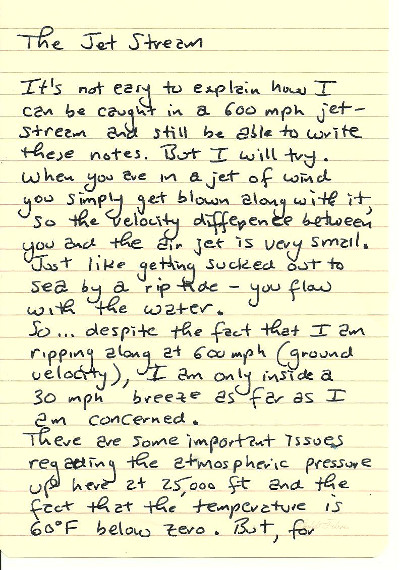 The Jet Stream
It's not easy to explain how I
can be caught in a 600 mph jet-
stream and still be able to write
these notes. But I will try.
When you are in a jet of wind
you simply get blown along with it,
so the velocity difference between
you and the air jet is very small.
Just like getting sucked out to
sea by a rip tide - you flow
with the water.
So... despite the fact that I am
ripping along at 600 mph (ground
velocity), I am only inside a
30 mph breeze as far as I
am concerned.
There are some important issues
regarding the atmospheric pressure
up here at 25,000 ft and the
fact that the temperature is
60°F below zero. But, for